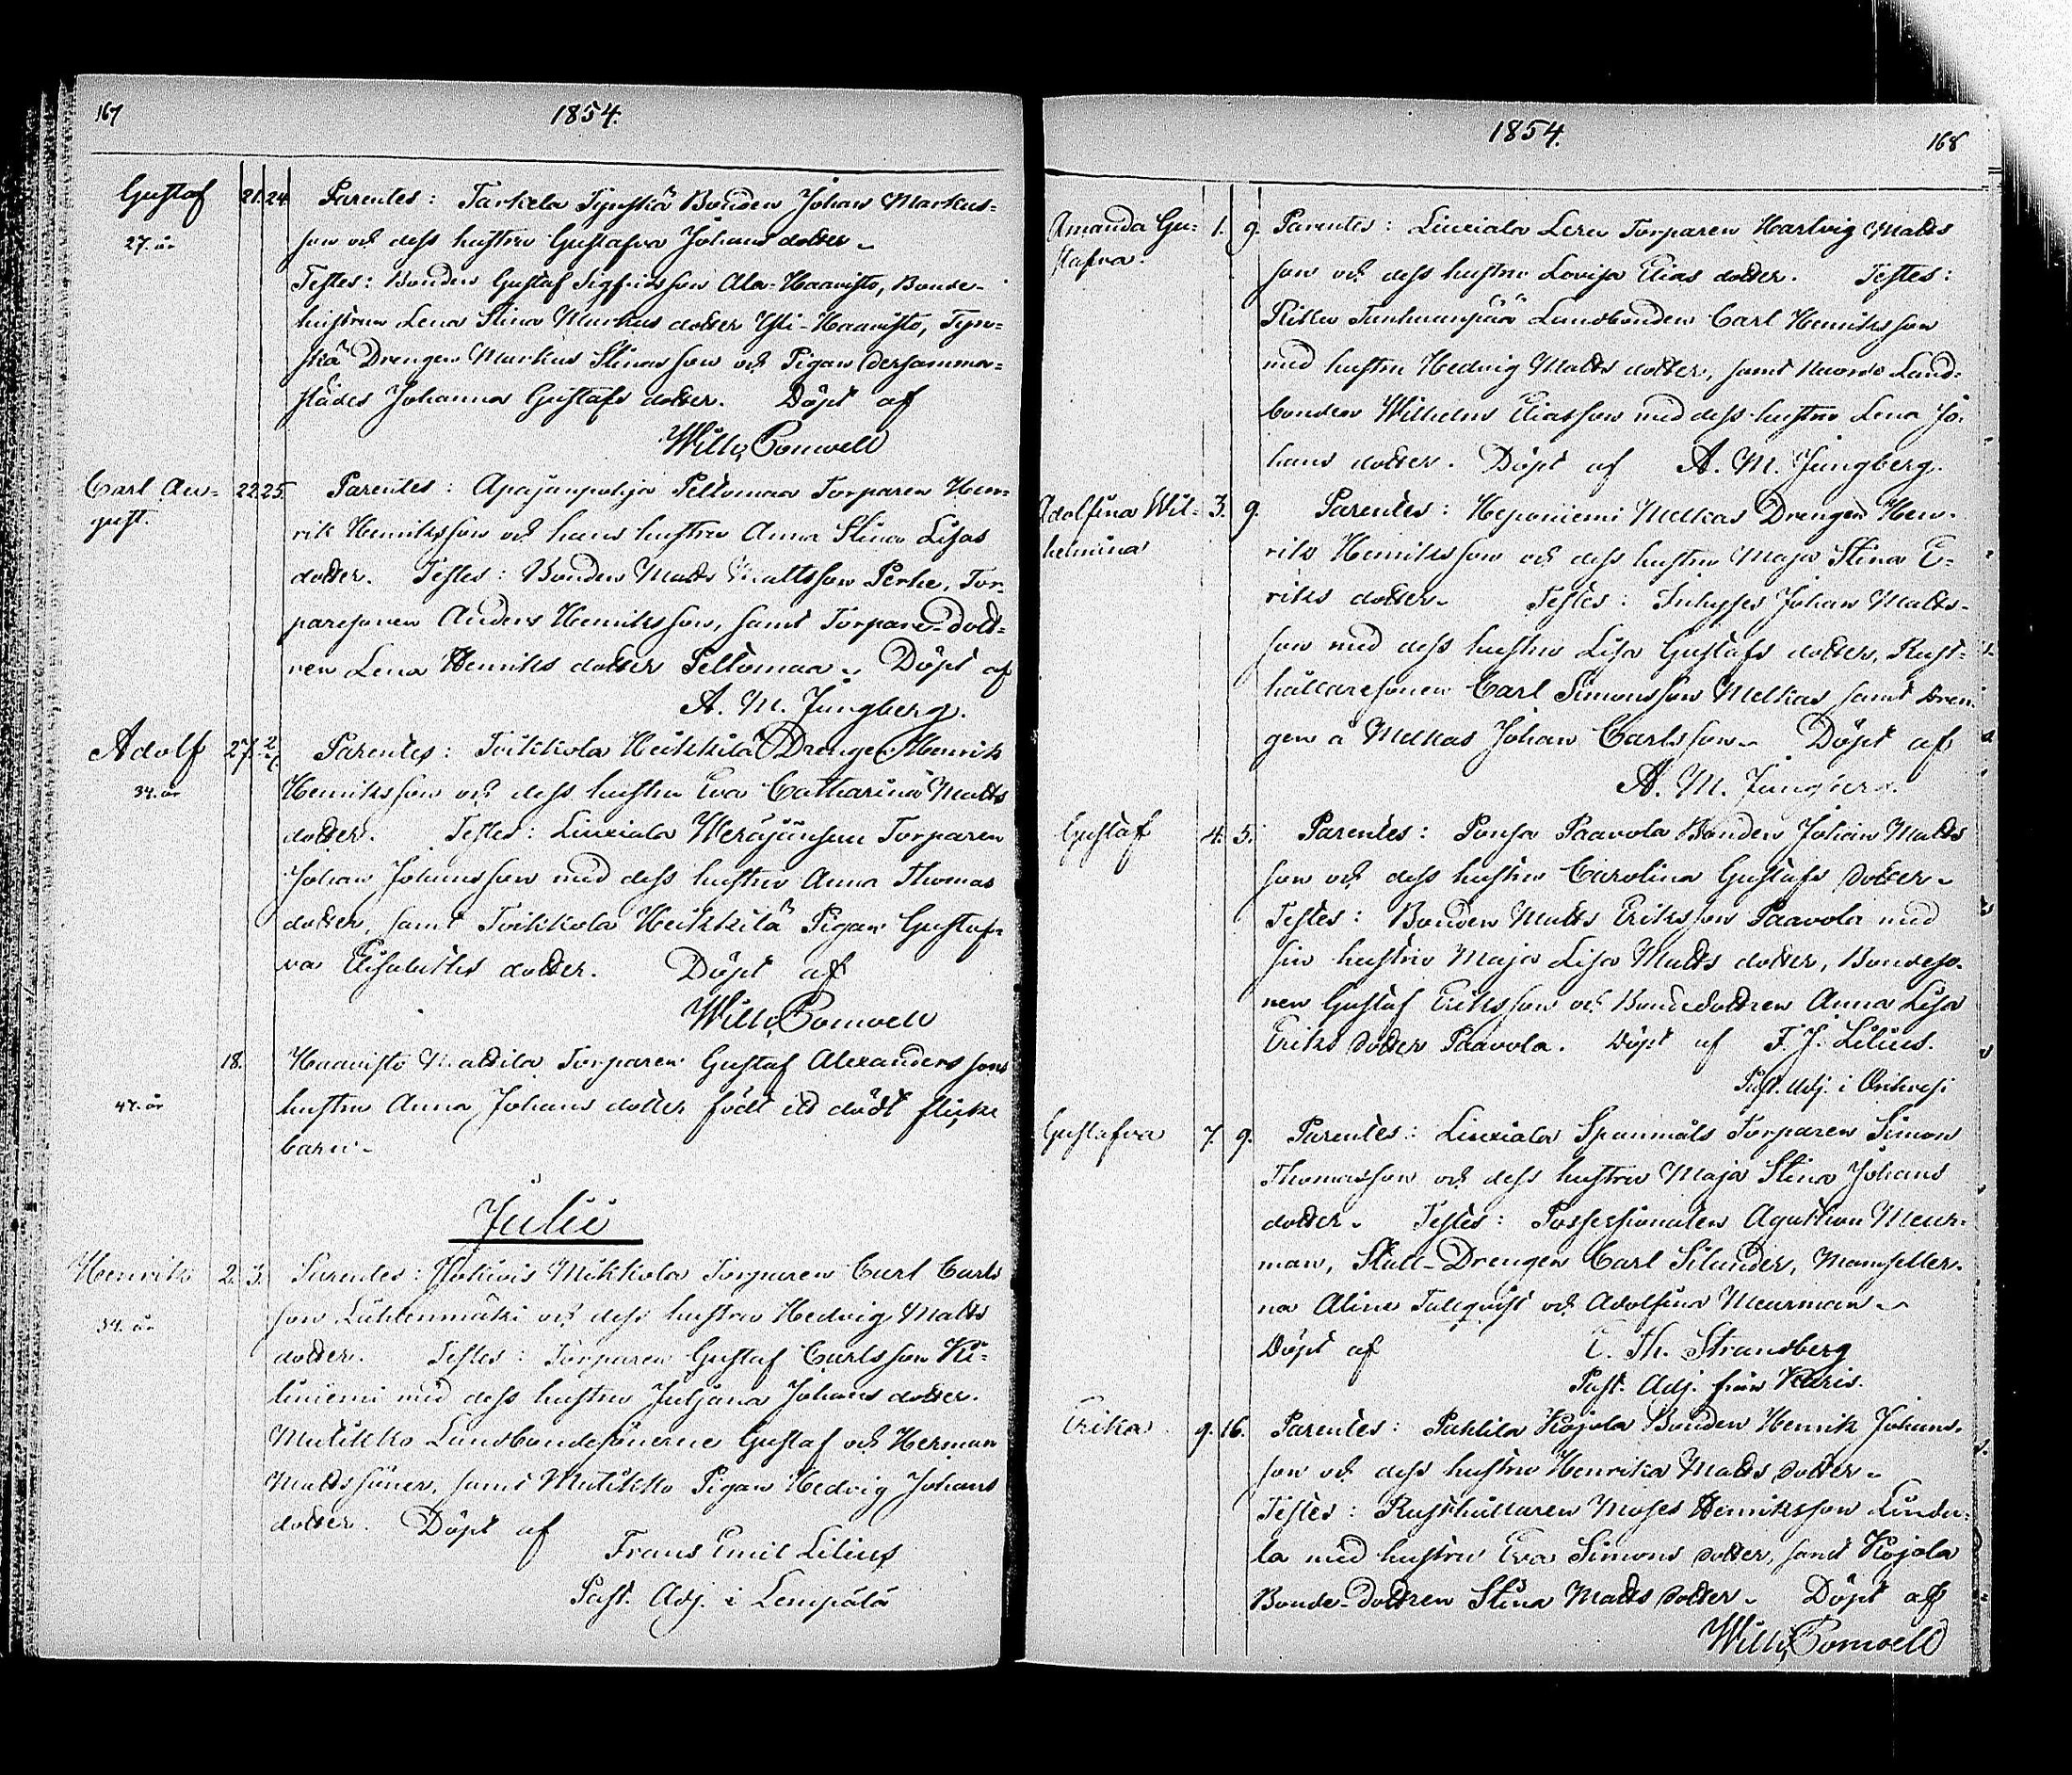 167
1854.
Gustaf 21. 24. Parentes: Tarkela Tynskä Bonden Johan Markus=
27. år
son och dess hustru Gustafva Johans dotter.
Testes: Bonden Gustaf Sigfridsson Ala-Haavisto, Bonde-
hustrun Lena Stina Markus dotter Yli-Haavisto, Tyn=
skä Drengen Markus Stinasson och Pigan dersamma=
städes Johanna Gustafs dotter. Döpt af
Wilh. Bomvell
Carl Au= 22. 25. Parentes: Apajanpohja Peltomaa Torparen Hen=
gust.
rik Henriksson och hans hustru Anna Stina Lisas
dotter. Testes: Bonden Matts Mattsson Perho, Tor=
paresonen Anders Henriksson, samt Torpare-dott=
ren Lena Henriks dotter Peltomaa. Döpt af
A. M. Jungberg.
Adolf 27. Parentes: Toikkola Heikkilä Drengen Henrik
34. år
Henriksson och dess hustru Eva Catharina Matts
dotter. Testes: Linxiala Torparen
Johan Johansson med dess hustru Anna Thomas
dotter, samt Toikkola Heikkilä Pigan Gustaf=
va Elisabeths dotter. Döpt af
Wilh. Bomvell
18. Haavisto Torparen Gustaf Alexanderssons
47. år
hustru Anna Johans dotter födt ett dödt flicke
barn.
Julii
Henrik 2. 3. Parentes: Mikkola Torparen Carl Carls
34. år
son och dess hustru Hedvig Matts
dotter. Testes: Torparen Gustaf Carlsson Ki=
liniemi med dess hustru Juljana Johans dotter.
Mutikko Landbondesönerne Gustaf och Herman
Mattssöner, samt Mutikko Pigan Hedvig Johans
dotter. Döpt af
Frans Emil Lilius
Past. Adj. i Lempälä
1854.
168
Amanda Gu= 1. 9. Parentes: Linxiala Torparen Hartvig Matts
stafva.
son och dess hustru Lovisa Elias dotter. Testes:
Tanhuanpää Landbonden Carl Henriksson
med hustru Hedvig Matts dotter, samt Land=
bonden Wilhelm Eliasson med dess hustru Lena Jo=
hans dotter. Döpt af A. M. Jungberg.
Adolfina Wil= 3. 9. Parentes: Heponiemi Melkas Drengen Hen=
helmina
rik Henriksson och dess hustru Maja Stina E=
riks dotter. Testes: Inhyses Johan Matts=
son med dess hustru Lisa Gustafs dotter, Rust=
hållaresonen Carl Simonsson Melkas samt Dren=
gen å Melkas Johan Carlsson. Döpt af
A. M. Jungberg.
Gustaf 4. 5. Parentes: Ponsa Paavola Bonden Johan Matts
son och dess hustru Carolina Gustafs dotter.
Testes: Bonden Matts Eriksson Paavola med
sin hustru Maja Lisa Matts dotter, Bondeso=
nen Gustaf Eriksson och Bondedottren Anna Lisa
Eriks dotter Paavola. Döpt af F. J. Lilius.
Past. Adj. i Orihvesi
Gustafva 7. 9. Parentes: Linxiala Torparen Simon
Thomasson och dess hustru Maja Stina Johans
dotter. Testes: Possessionaten Agathon Meur=
man, Stall-Drengen Carl Silander, Mamseller=
na Aline Tallqvist och Adolfina Meurman.
Döpt af E. Th. Strandberg
Past. Adj. från Karis.
Erika 9. 16. Parentes: Pakkila Kojola Bonden Henrik Johans=
son och dess hustru Henrika Matts dotter.
Testes: Rusthållaren Moses Henriksson Linda=
la med hustru Eva Simons dotter, samt Kojola
Bonde-dottren Stina Matts dotter. Döpt af
Wilh. Bomvell